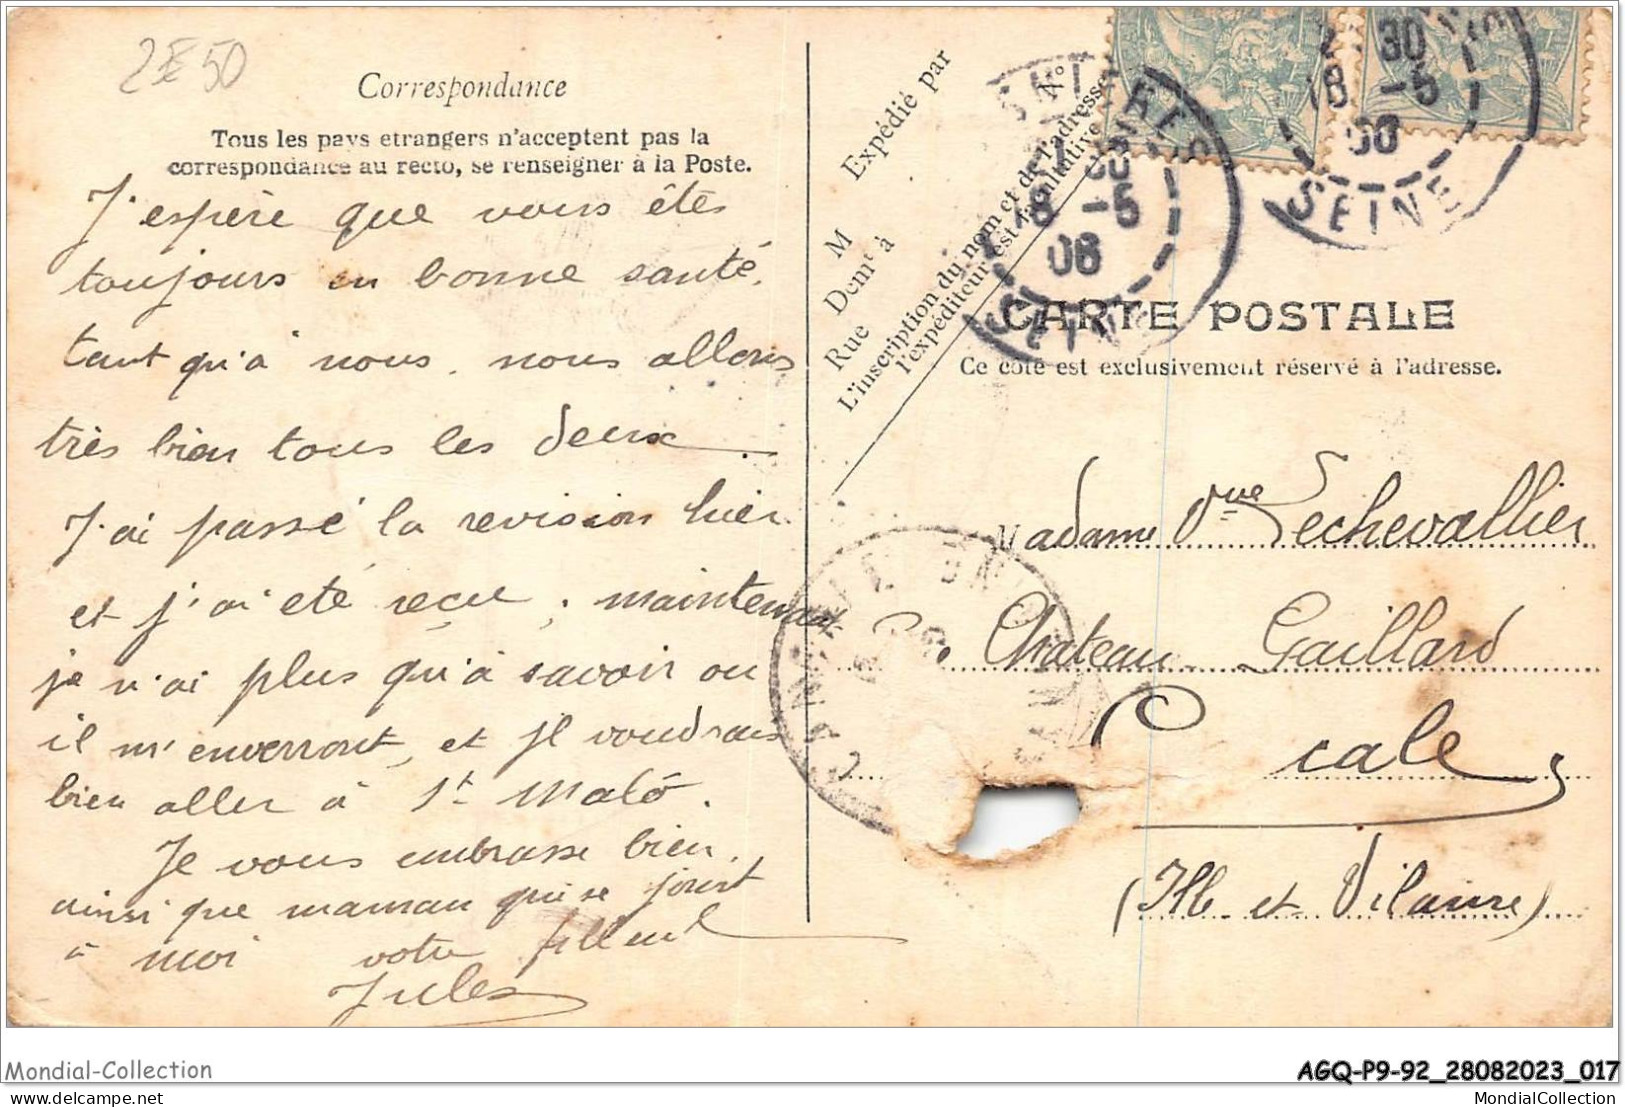 2 50
Correspondance
Tous les pays etrangers n'acceptent pas la
correspondance au recto, se renseigner à la Poste.
J'espère que vous êtes
toujours en bonne santé,
tant qu'à nous, nous allons
très bien tous les deux.
J'ai passé la revision hier
et j'ai été reçu, maintenant
je n'ai plus qu'à savoir ou
il m'enverront, et je voudrais
bien aller à St Malô.
Je vous embrasse bien,
ainsi que maman qui se joint
à moi votre filleul
Jules
Expédié par
M
Demt à
Rue
N°
L'inscription du nom et de l'adresse de
l'expéditeur est facultative
8 -5
06
SEINE
30
18 -5
06
SEINE
CARTE POSTALE
Ce côté est exclusivement réservé à l'adresse.
Madame Vve Lechevallier
Château Gaillard
Cale
(Ille et Vilaine)
Mondial-Collection
AGQ-P9-92_28082023_017
www.delcampe.net
MondialCollection